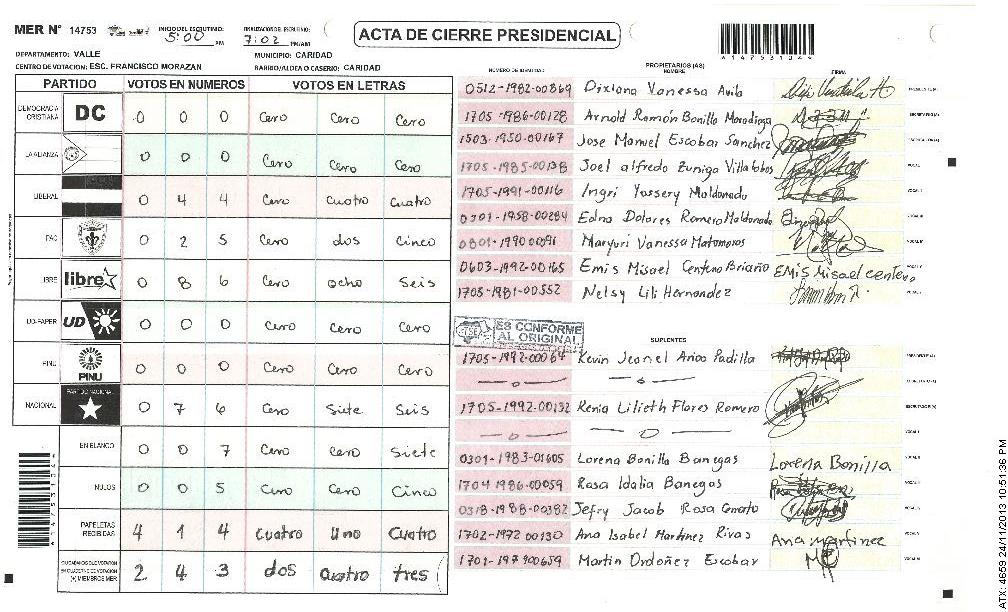 MER N° 14753 INICIO DEL ESCRUTINIO: 5:00 PM FINALIZACION DEL ESCRUTINIO: 7:02 PM/AM
ACTA DE CIERRE PRESIDENCIAL
A147531044
DEPARTAMENTO: VALLE MUNICIPIO: CARIDAD
CENTRO DE VOTACION: ESC. FRANCISCO MORAZAN BARRIO/ALDEA O CASERIO: CARIDAD
PARTIDO VOTOS EN NUMEROS VOTOS EN LETRAS
DEMOCRACIA CRISTIANA DC 0 0 0 Cero Cero Cero
LA ALIANZA 0 0 0 Cero Cero Cero
LIBERAL 0 4 4 Cero Cuatro Cuatro
PAC 0 2 5 Cero dos Cinco
LIBRE libre 0 8 6 Cero ocho Seis
UD-FAPER UD 0 0 0 Cero Cero Cero
PINU PINU 0 0 0 Cero Cero Cero
NACIONAL PARTIDO NACIONAL 0 7 6 Cero Siete Seis
EN BLANCO 0 0 7 Cero Cero Siete
NULOS 0 0 5 Cero Cero Cinco
PAPELETAS RECIBIDAS 4 1 4 Cuatro Uno Cuatro
2 4 3 dos Cuatro tres
(+) MIEMBROS MER
NUMERO DE IDENTIDAD PROPIETARIOS (AS) NOMBRE FIRMA
0512-1982-00869 Dixiana Vanessa Avila PRESIDENTE(A)
1705-1986-00128 Arnold Ramón Bonilla Moradiaga SECRETARIO(A)
1503-1950-00167 Jose Manuel Escobar Sanchez ESCRUTADOR(A)
1705-1985-00138 Joel alfredo Zuniga Villalobos
1705-1991-00116 Ingri Yossery Maldonado
0301-1958-00284 Edna Dolores Romero Maldonado
0801-1990 00096 Maryuri Vanessa Matamoros
0603-1992-00165 Emis Misael Centeno Briaño EMIS Misael centeno
1705-1981-00552 Nelsy Lili Hernandez
TSE ES CONFORME AL ORIGINAL
SUPLENTES
1705-1992-00064 Kevin Jeonel Arias Padilla PRESIDENTE(A)
1705-1992-00132 Kenia Lilieth Flores Romero ESCRUTADOR(A)
0301-1983-01605 Lorena Bonilla Banegas Lorena Bonilla
1704 1986-00059 Rosa Idalia Banegas
0318-1988-00382 Jefry Jacob Rosa
1702-1972 00130 Ana Isabel Martinez Rivas Ana martinez
1701-197900659 Martin Ordoñez Escobar
ATX: 4659 24/11/2013 10:51:36 PM